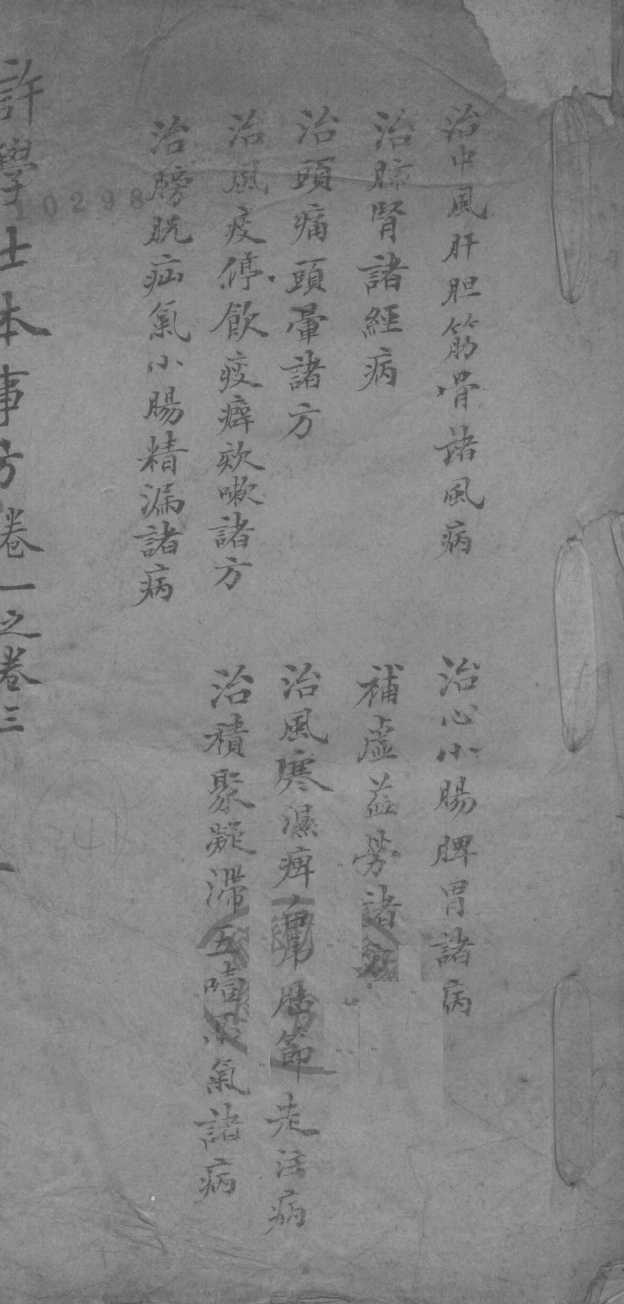 治中風肝胆筋骨諸風病
治心小腸脾胃諸病
治肺腎諸經病
補虛益勞諸方
治頭痛頭暈諸方
治風寒濕痺 節走注病
治風痰停飲痰癖欬嗽諸方
治積聚凝滯五噎 氣諸病
治膀胱疝氣小腸精漏諸病
10298
許學士本事方卷一之卷三